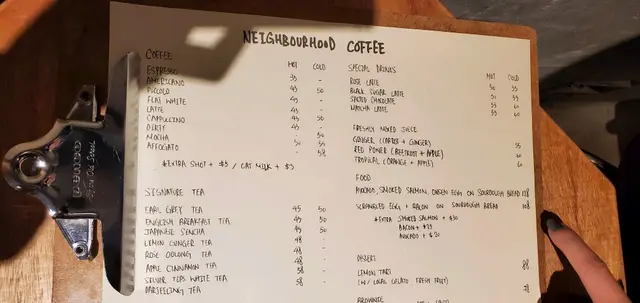 NEIGHBOURHOOD COFFEE
COFFEE HOT COLD
ESPRESSO 35 -
AMERICANO 45 50
PICCOLO 45 -
FLAT WHITE 45 -
LATTE 45 50
CAPPUCCINO 45 -
DIRTY - 50
MOCHA 50 55
AFFOGATO - 58
*EXTRA SHOT + $5 / OAT MILK + $5
SIGNATURE TEA
EARL GREY TEA 45 50
ENGLISH BREAKFAST TEA 45 50
JAPANESE SENCHA 45 50
LEMON GINGER TEA 48 -
ROSE OOLONG TEA 48 -
APPLE CINNAMON TEA 48 -
SILVER TIPS WHITE TEA 58 -
DARJEELING TEA 58 -
SPECIAL DRINKS HOT COLD
ROSE LATTE 50 55
BLACK SUGAR LATTE 55
SPICED CHOCOLATE 55 60
MATCHA LATTE 55 60
FRESHLY MIXED JUICE
GINGER (CARROT + GINGER) 55
RED POWER (BEETROOT + APPLE) 60
TROPICAL (ORANGE + APPLE) 60
FOOD
AVOCADO, SMOKED SALMON, ONSEN EGG ON SOURDOUGH BREAD 128
SCRAMBLED EGG + BACON ON SOURDOUGH BREAD 108
*EXTRA SMOKED SALMON + $30
BACON +
AVOCADO + $20
DESSERT
LEMON TART 88
(W/ LOCAL GELATO FRESH FRUIT)
BROWNIE